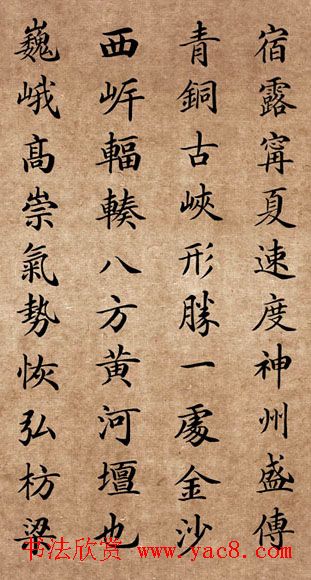 宿露甯夏速度神州盛傳
青銅古峽形勝一處金沙
西岓輻輳八方黄河壇也
巍峨髙崇氣勢恢弘枋梁
书法欣赏 www.yac8.com